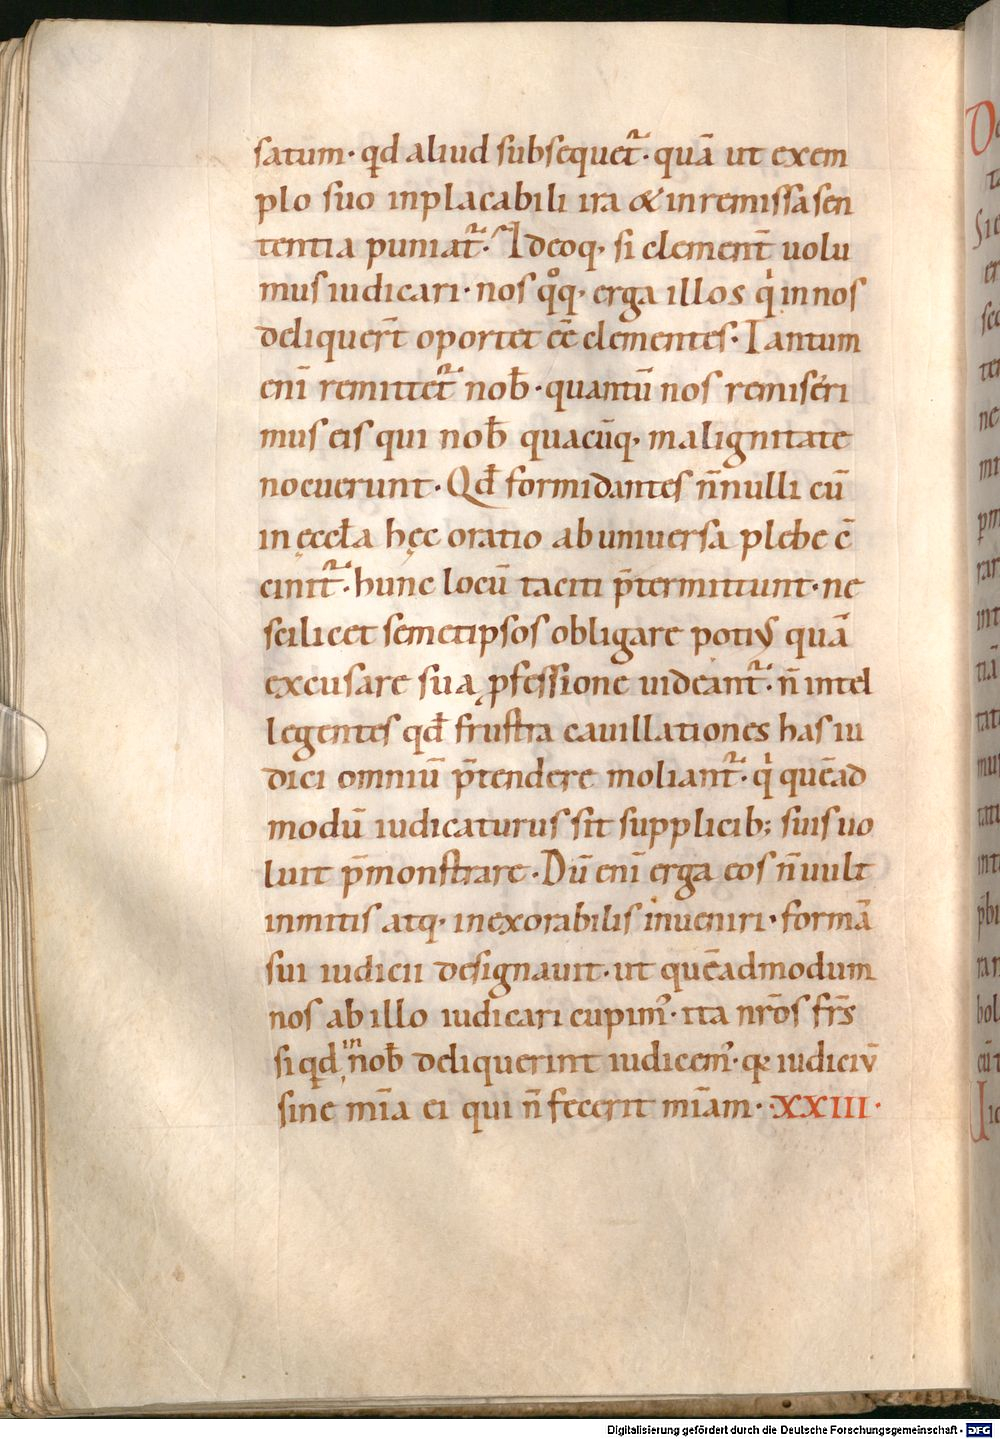 satum· qd aliud subsequet᷑· quā ut exem
plo suo inplacabili ira & inremissa sen
tentia puniat᷑· Ideoq· si clement̄ uolu
mus iudicari· nos qͦq· erga illos qͥ in nos
deliquer̄t oportet eē clementes· Tantum
enī remittet᷑ nob̄· quantū nos remiseri
mus eis qui nob̄ quacūq· malignitate
nocuerunt· Qd̄ formidantes n̄nulli cū
in ęccła hęc oratio ab uniuersa plebe c̄
cinit᷑· hunc locū taciti p̄termittunt· ne
scilicet semetipsos obligare potiꝰ quā
excusare sua ꝓfessione uideant᷑· n̄ intel
legentes qd̄ frustra cauillationes has iu
dici omniū p̄tendere moliant᷑· qͥ quēad
modū iudicaturus sit supplicib; suis uo
luit p̄monstrare· Dū enī erga eos n̄ uult
inmitis atq· inexorabilis inueniri· formā
sui iudicii designauit· ut quēadmodum
nos ab illo iudicari cupimꝰ· ita nr̄os fr̄s
si qd in nob̄ deliquerint iudicemꝰ· qꝛ iudiciū
sine mīa ei qui n̄ fecerit mīam· XXIII·
Digitalisierung gefördert durch die Deutsche Forschungsgemeinschaft - DFG